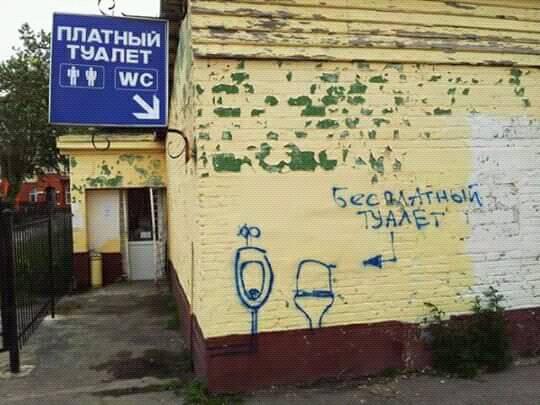 ПЛАТНЫЙ
ТУАЛЕТ
WC
Бесплатный
ТУАЛЕТ